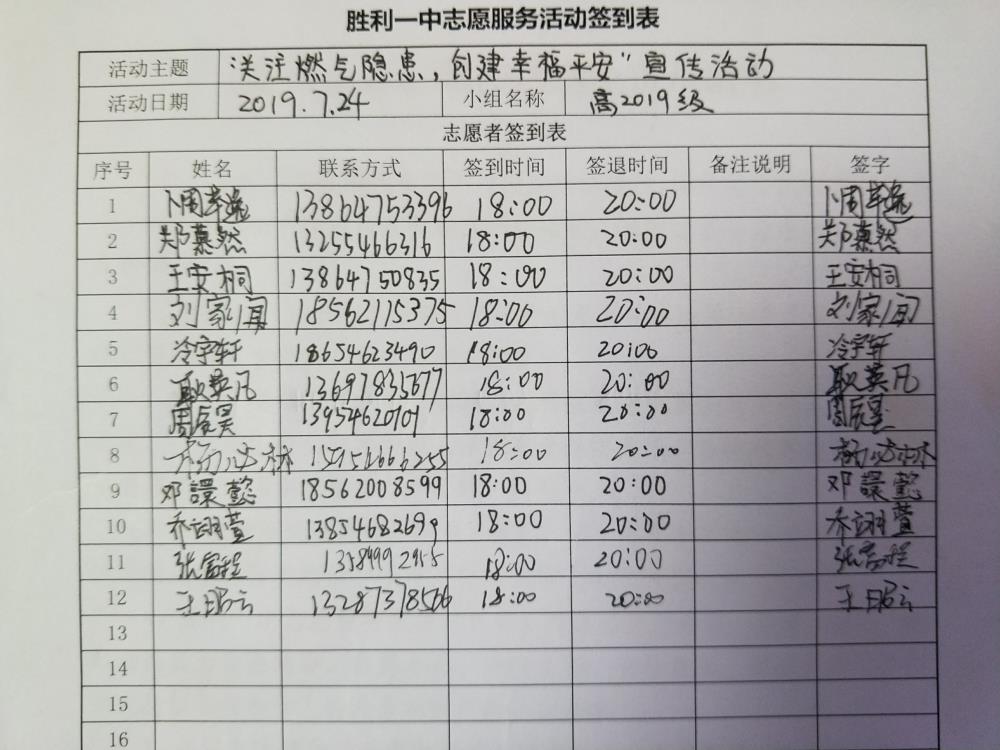 胜利一中志愿服务活动签到表
活动主题 关注燃气隐患，创建幸福平安"宣传活动
活动日期 2019.7.24 小组名称 高2019级
志愿者签到表
序号 姓名 联系方式 签到时间 签退时间 备注说明 签字
1 13864753396 18:00 20:00
2 郑慕然 13255466316 18:00 20:00 郑慕然
3 王安桐 13864750835 18:00 20:00 王安桐
4 刘家闻 18562115375 18:00 20:00 刘家闻
5 冷宇轩 18654623490 18:00 20:00 冷宇轩
6 耿英凡 13697835677 18:00 20:00 耿英凡
7 周辰昊 13954620701 18:00 20:00 周辰昊
8 18:00 20:00
9 邓譞懿 18562008599 18:00 20:00 邓譞懿
10 乔翊萱 18:00 20:00 乔翊萱
11 张富程 18:00 20:00 张富程
12 王昭云 13287378566 18:00 20:00 王昭云
13
14
15
16